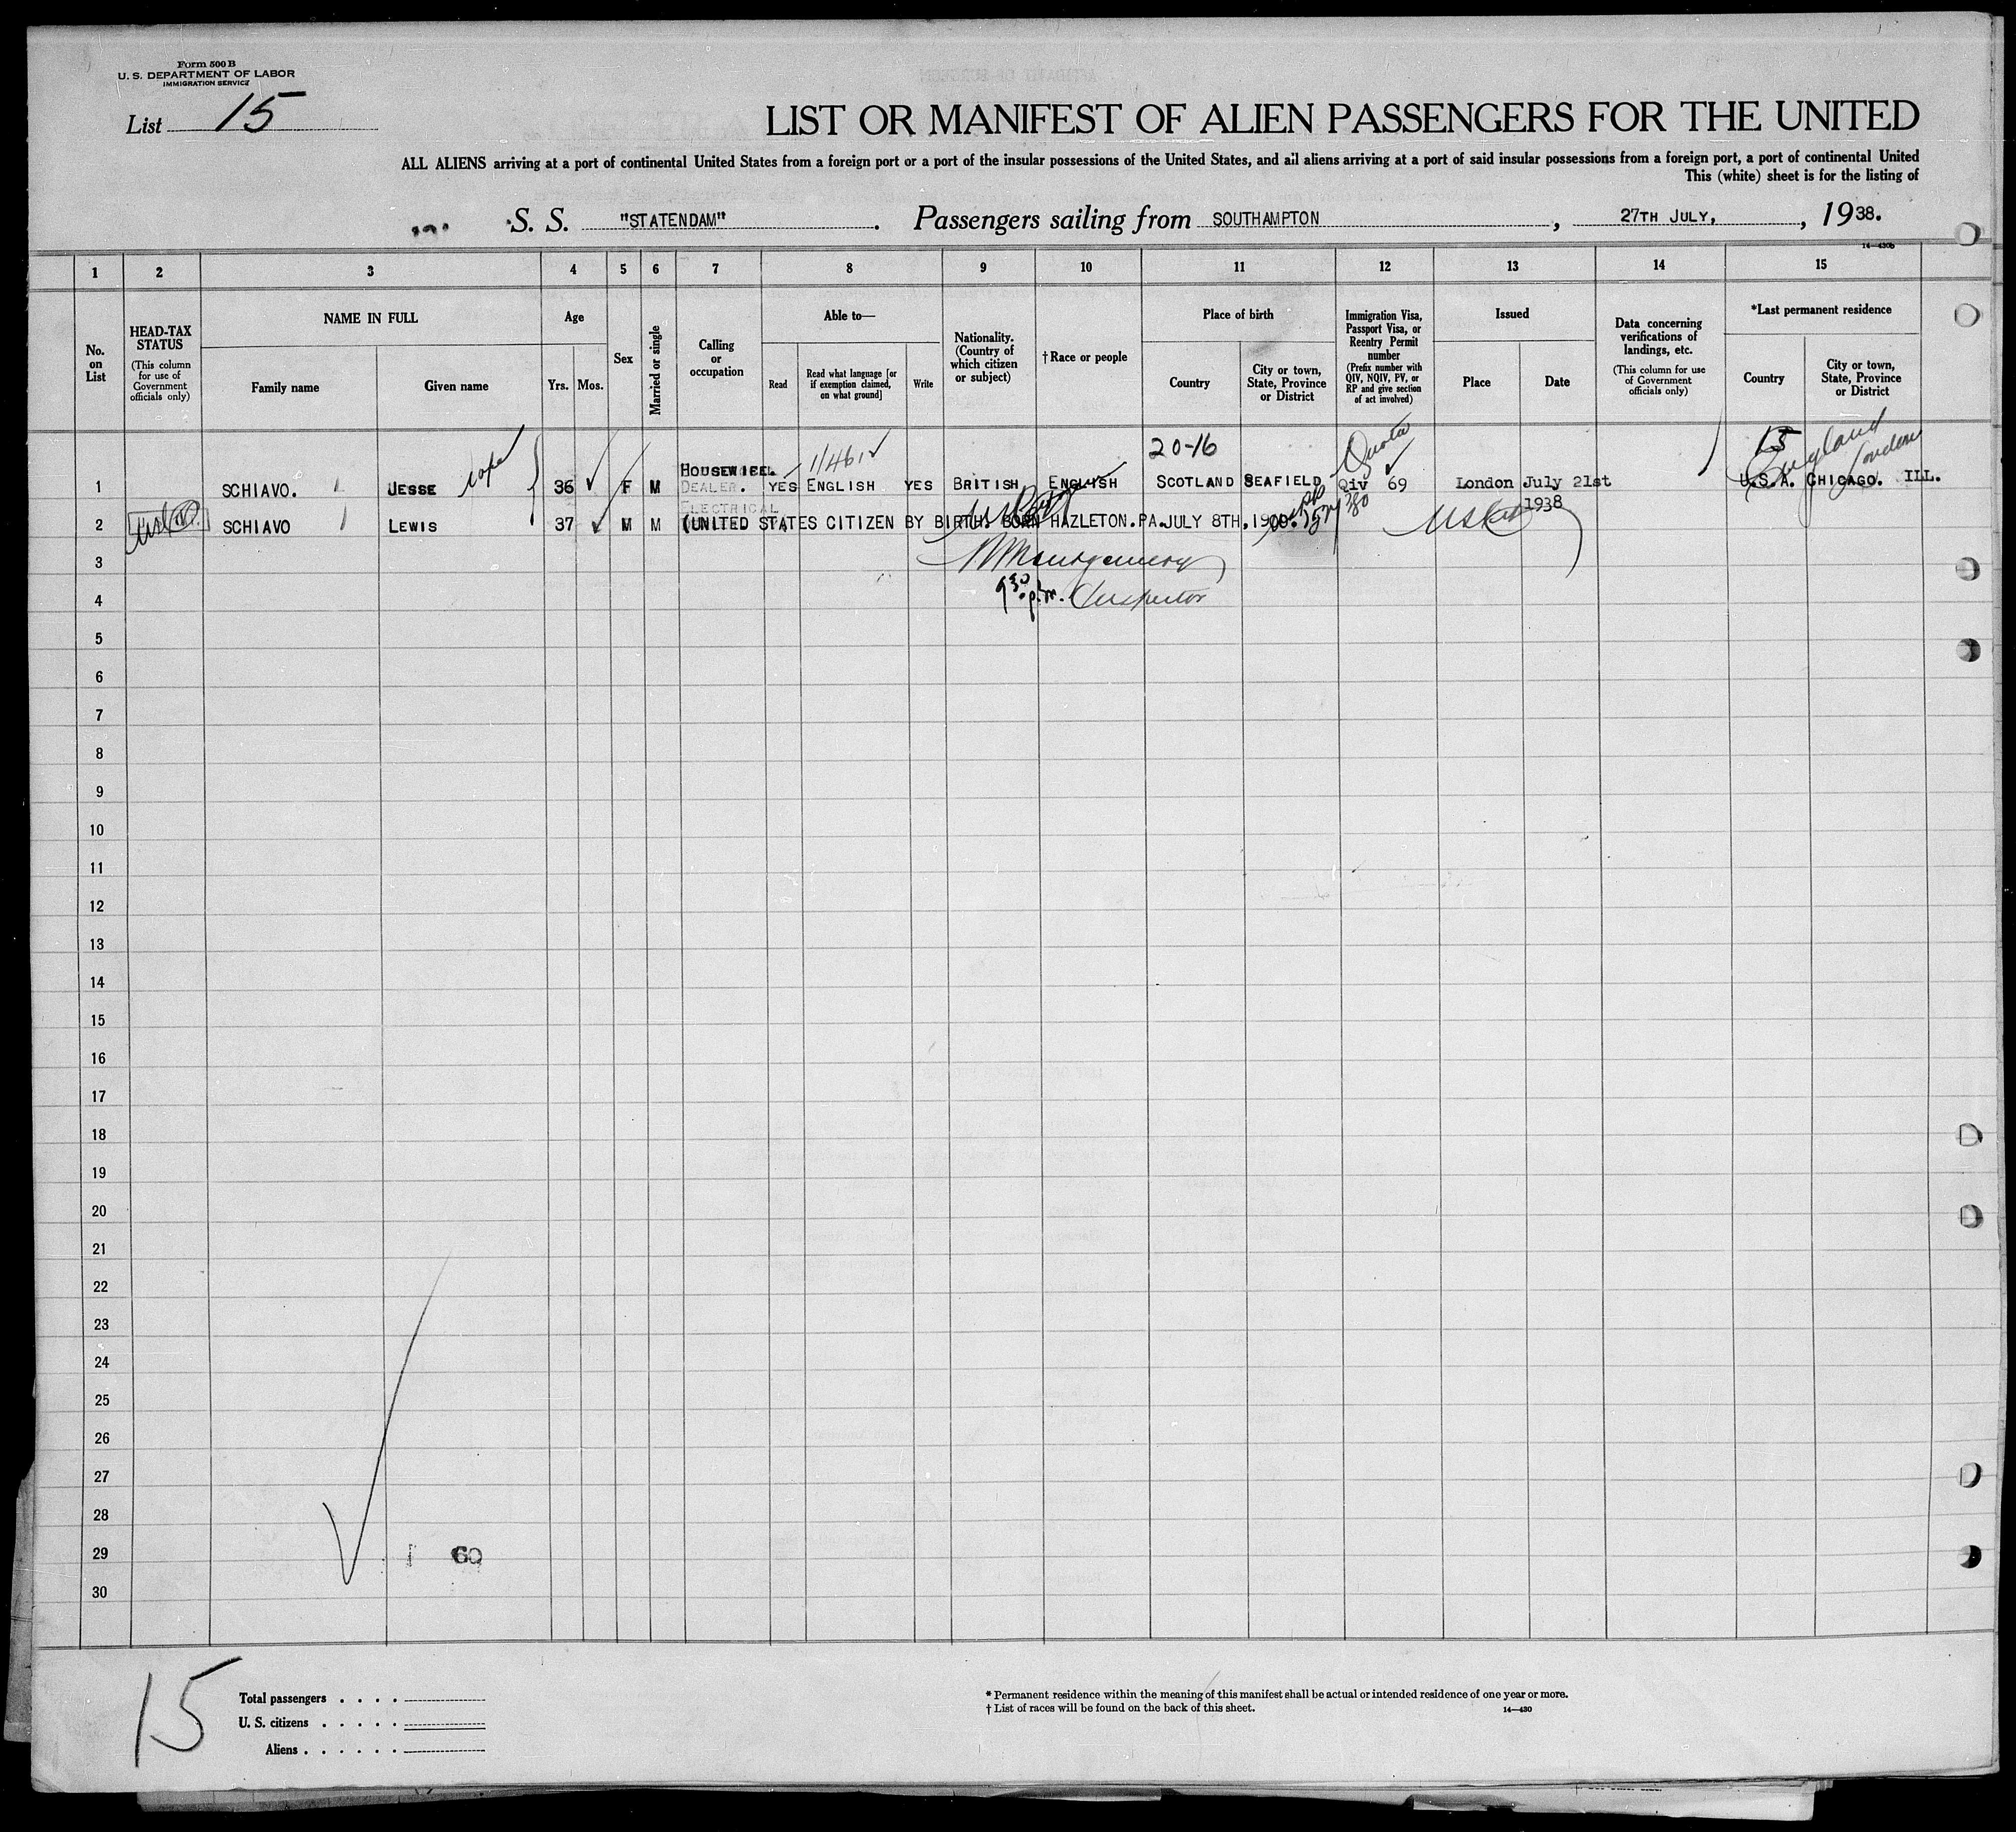 Form 500 B
U. S. DEPARTMENT OF LABOR
IMMIGRATION SERVICE
List 15
LIST OR MANIFEST OF ALIEN PASSENGERS FOR THE UNITED
ALL ALIENS arriving at a port of continental United States from a foreign port or a port of the insular possessions of the United States, and all aliens arriving at a port of said insular possessions from a foreign port, a port of continental United
This (white) sheet is for the listing of
S. S. "STATENDAM". Passengers sailing from SOUTHAMPTON, 27TH JULY, , 1938.
14—430b
1 2 3 4 5 6 7 8 9 10 11 12 13 14 15
No. on List
HEAD-TAX STATUS
(This column for use of Government officials only)
NAME IN FULL
Family name
Given name
Age
Yrs.
Mos.
Sex
Married or single
Calling or occupation
Able to—
Read
Read what language [or if exemption claimed, on what ground]
Write
Nationality. (Country of which citizen or subject)
† Race or people
Place of birth
Country
City or town, State, Province or District
Immigration Visa, Passport Visa, or Reentry Permit number
(Prefix number with QIV, NQIV, PV, or RP and give section of act involved)
Issued
Place
Date
Data concerning verifications of landings, etc.
(This column for use of Government officials only)
*Last permanent residence
Country
City or town, State, Province or District
20-16 Quota 15 England London
1 SCHIAVO. JESSE 36 F M HOUSEWIFE. DEALER. YES ENGLISH YES BRITISH ENGLISH SCOTLAND SEAFIELD Qiv 69 London July 21st 1938 U.S.A. CHICAGO. ILL.
ELECTRICAL
2 SCHIAVO LEWIS 37 M M (UNITED STATES CITIZEN BY BIRTH. BORN HAZLETON.PA.JULY 8TH,1900.
3 Montgomery
4 9 30 p.m. Inspector
5
6
7
8
9
10
11
12
13
14
15
16
17
18
19
20
21
22
23
24
25
26
27
28
29 60
30
15
Total passengers . . . .
U. S. citizens . . . . .
Aliens . . . . . .
* Permanent residence within the meaning of this manifest shall be actual or intended residence of one year or more.
† List of races will be found on the back of this sheet.
14—430